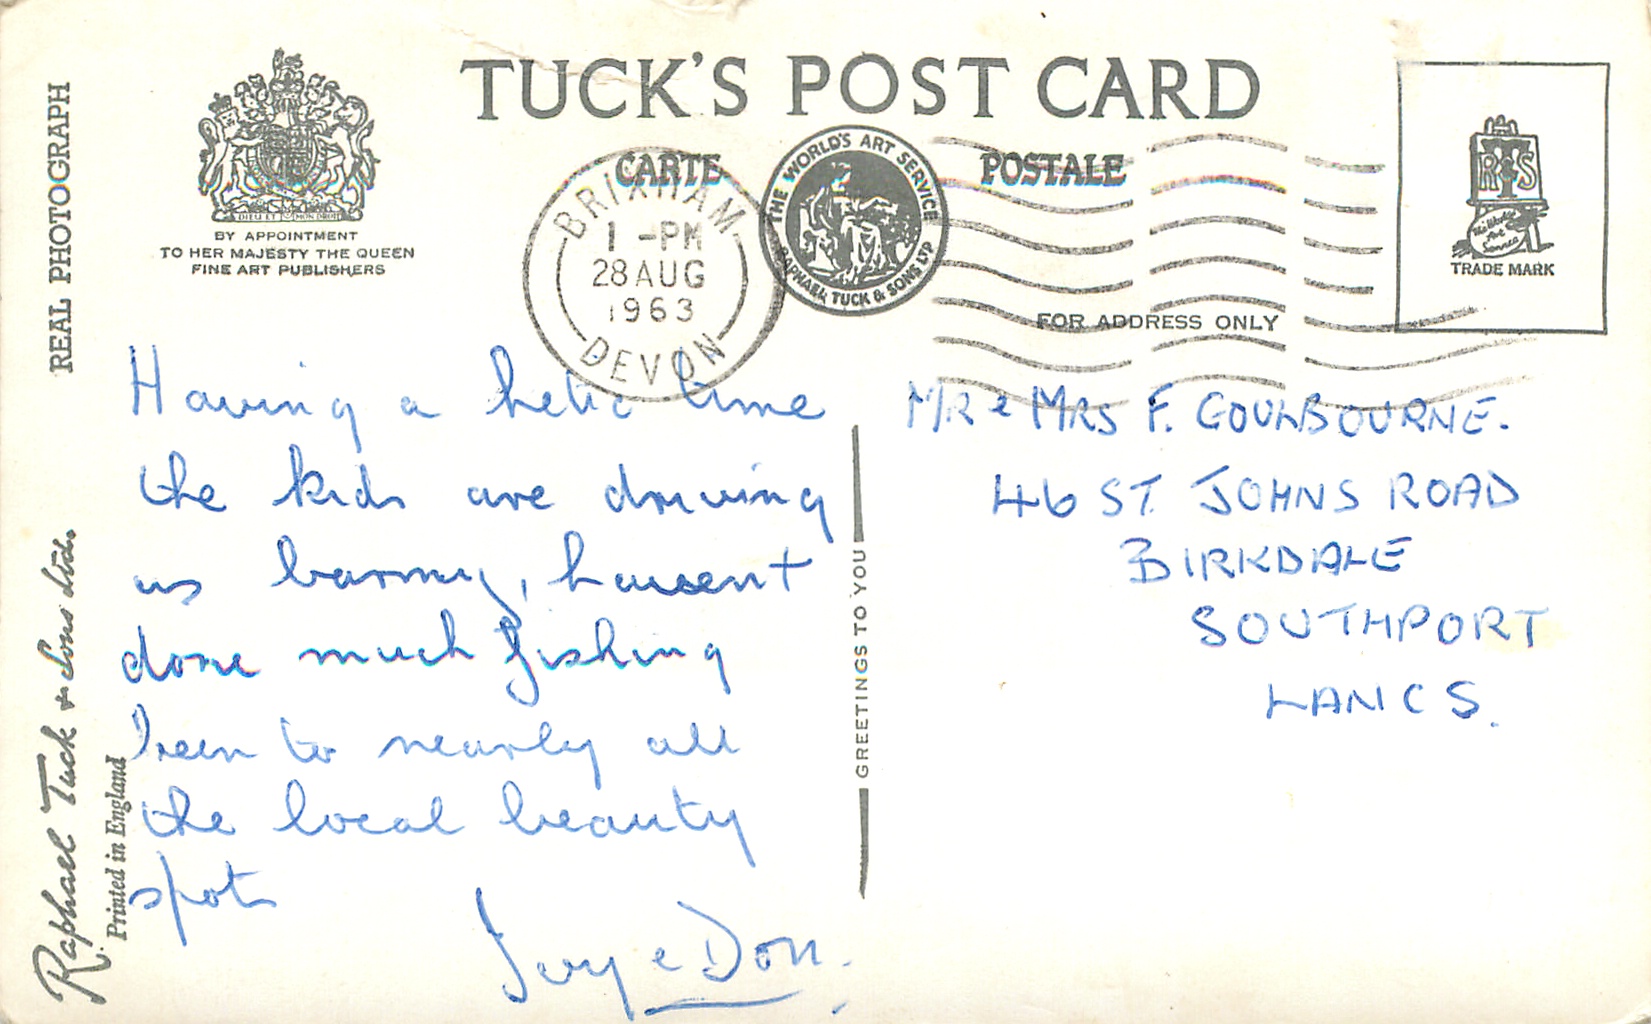 TUCK'S POST CARD
CARTE POSTALE
THE WORLD'S ART SERVICE
RAPHAEL TUCK & SONS LTD
BRIXHAM
1 -PM
28 AUG
1963
DEVON
DIEU ET MON DROIT
BY APPOINTMENT
TO HER MAJESTY THE QUEEN
FINE ART PUBLISHERS
R T S
The World's
Art
Service
TRADE MARK
FOR ADDRESS ONLY
REAL PHOTOGRAPH
Raphael Tuck & Sons Ltd.
Printed in England
Having a hetic time
the kids are driving
us barmy, havent
done much fishing
been to nearly all
the local beauty
spots
& Don.
GREETINGS TO YOU
MR & MRS F. GOULBOURNE.
46 ST. JOHNS ROAD
BIRKDALE
SOUTHPORT
LANCS.